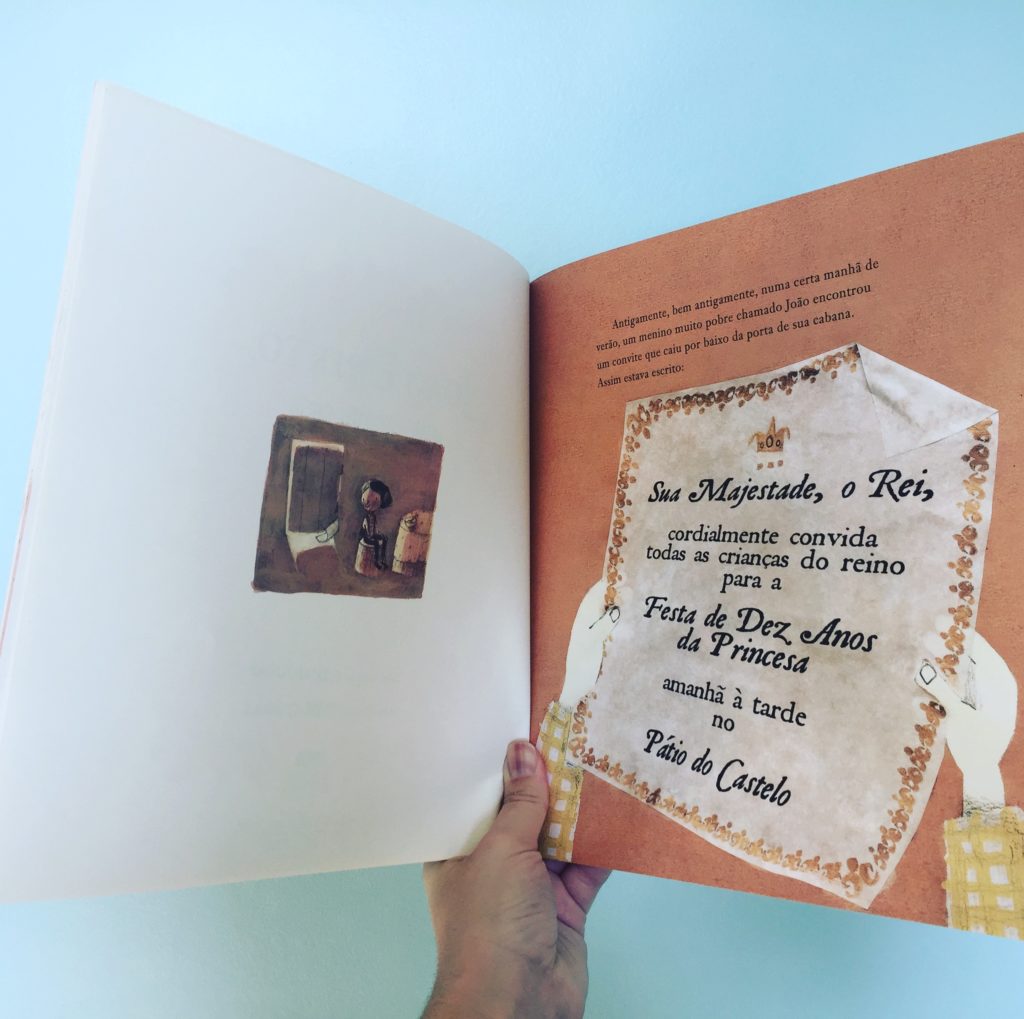 Antigamente, bem antigamente, numa certa manhã de
verão, um menino muito pobre chamado João encontrou
um convite que caiu por baixo da porta de sua cabana.
Assim estava escrito:
Sua Majestade, o Rei,
cordialmente convida
todas as crianças do reino
para a
Festa de Dez Anos
da Princesa
amanhã à tarde
no
Pátio do Castelo